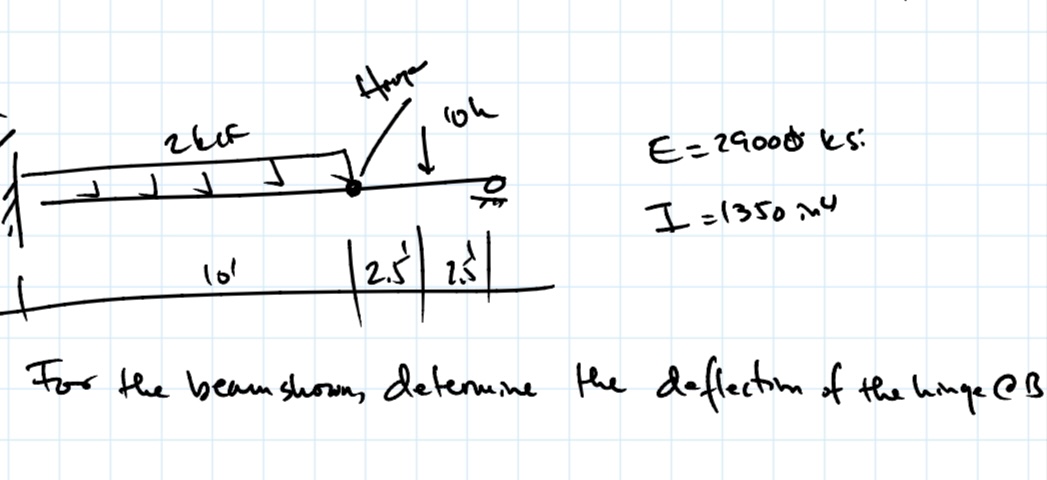 Hinge
10k
2 klf
E = 29000 ksi
I = 1350 in4
10' 2.5' 2.5'
For the beam shown, determine the deflection of the hinge @ B